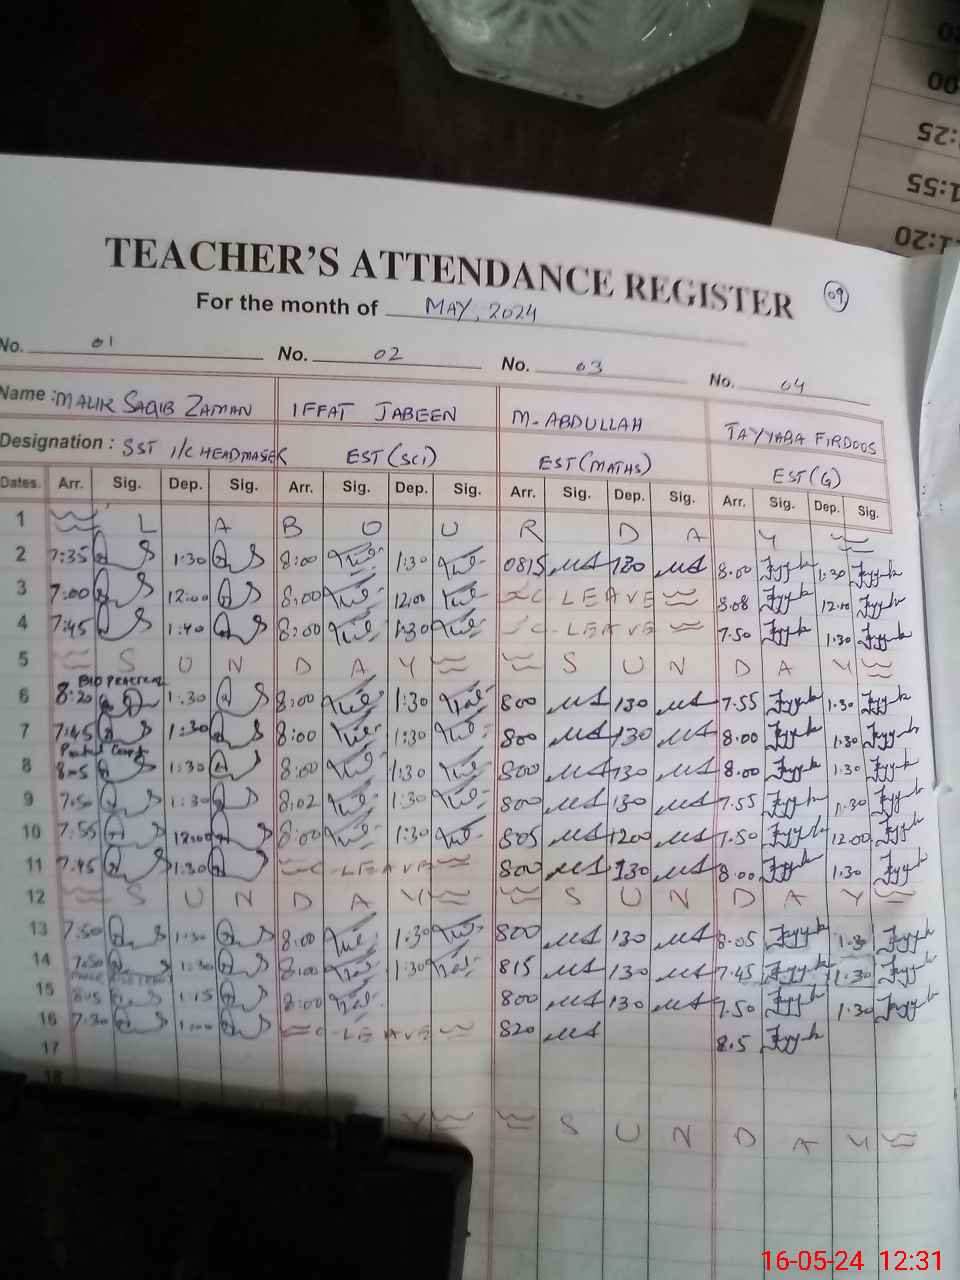 :20
:00
:25
1:55
11:20
TEACHER'S ATTENDANCE REGISTER
09
For the month of MAY, 2024
No. 01 No. 02 No. 03 No. 04
Name : MALIK SAQIB ZAMAN IFFAT JABEEN M. ABDULLAH TAYYABA FIRDOOS
Designation : SST I/C HEADMASEK EST (SCI) EST (MATHS) EST (G)
Dates. Arr. Sig. Dep. Sig. Arr. Sig. Dep. Sig. Arr. Sig. Dep. Sig. Arr. Sig. Dep. Sig.
1 L A B O U R D A Y
2 7:35 1:30 8:00 1:30 0815 130 8.00 1:30
3 7:00 12:00 8:00 12:00 C-LEAVE 8.08 12:00
4 7:45 1:40 8:00 1:30 C-LEAVE 7.50 1:30
5 S U N D A Y S U N D A Y
BIO PRACTICAL
6 8:20 1:30 8:00 1:30 800 130 7.55 1:30
7 7:45 1:30 8:00 1:30 800 130 8.00 1:30
8 8:05 1:30 8:00 1:30 800 130 8.00 1:30
9 7:50 1:30 8:02 1:30 800 130 7.55 1:30
10 7:55 12:00 8:00 1:30 805 1200 7.50 12:00
11 7:45 1:30 C-LEAVE 800 130 8.00 1:30
12 S U N D A Y S U N D A Y
13 7:50 1:30 8:00 1:30 800 130 8.05 1:30
14 7:50 1:30 8:00 1:30 815 130 7.45 1:30
15 8:15 1:15 8:00 800 130 7.50 1:30
16 7:30 1:00 C-LEAVE 820 8.5
17
18
Y S U N D A Y
16-05-24 12:31